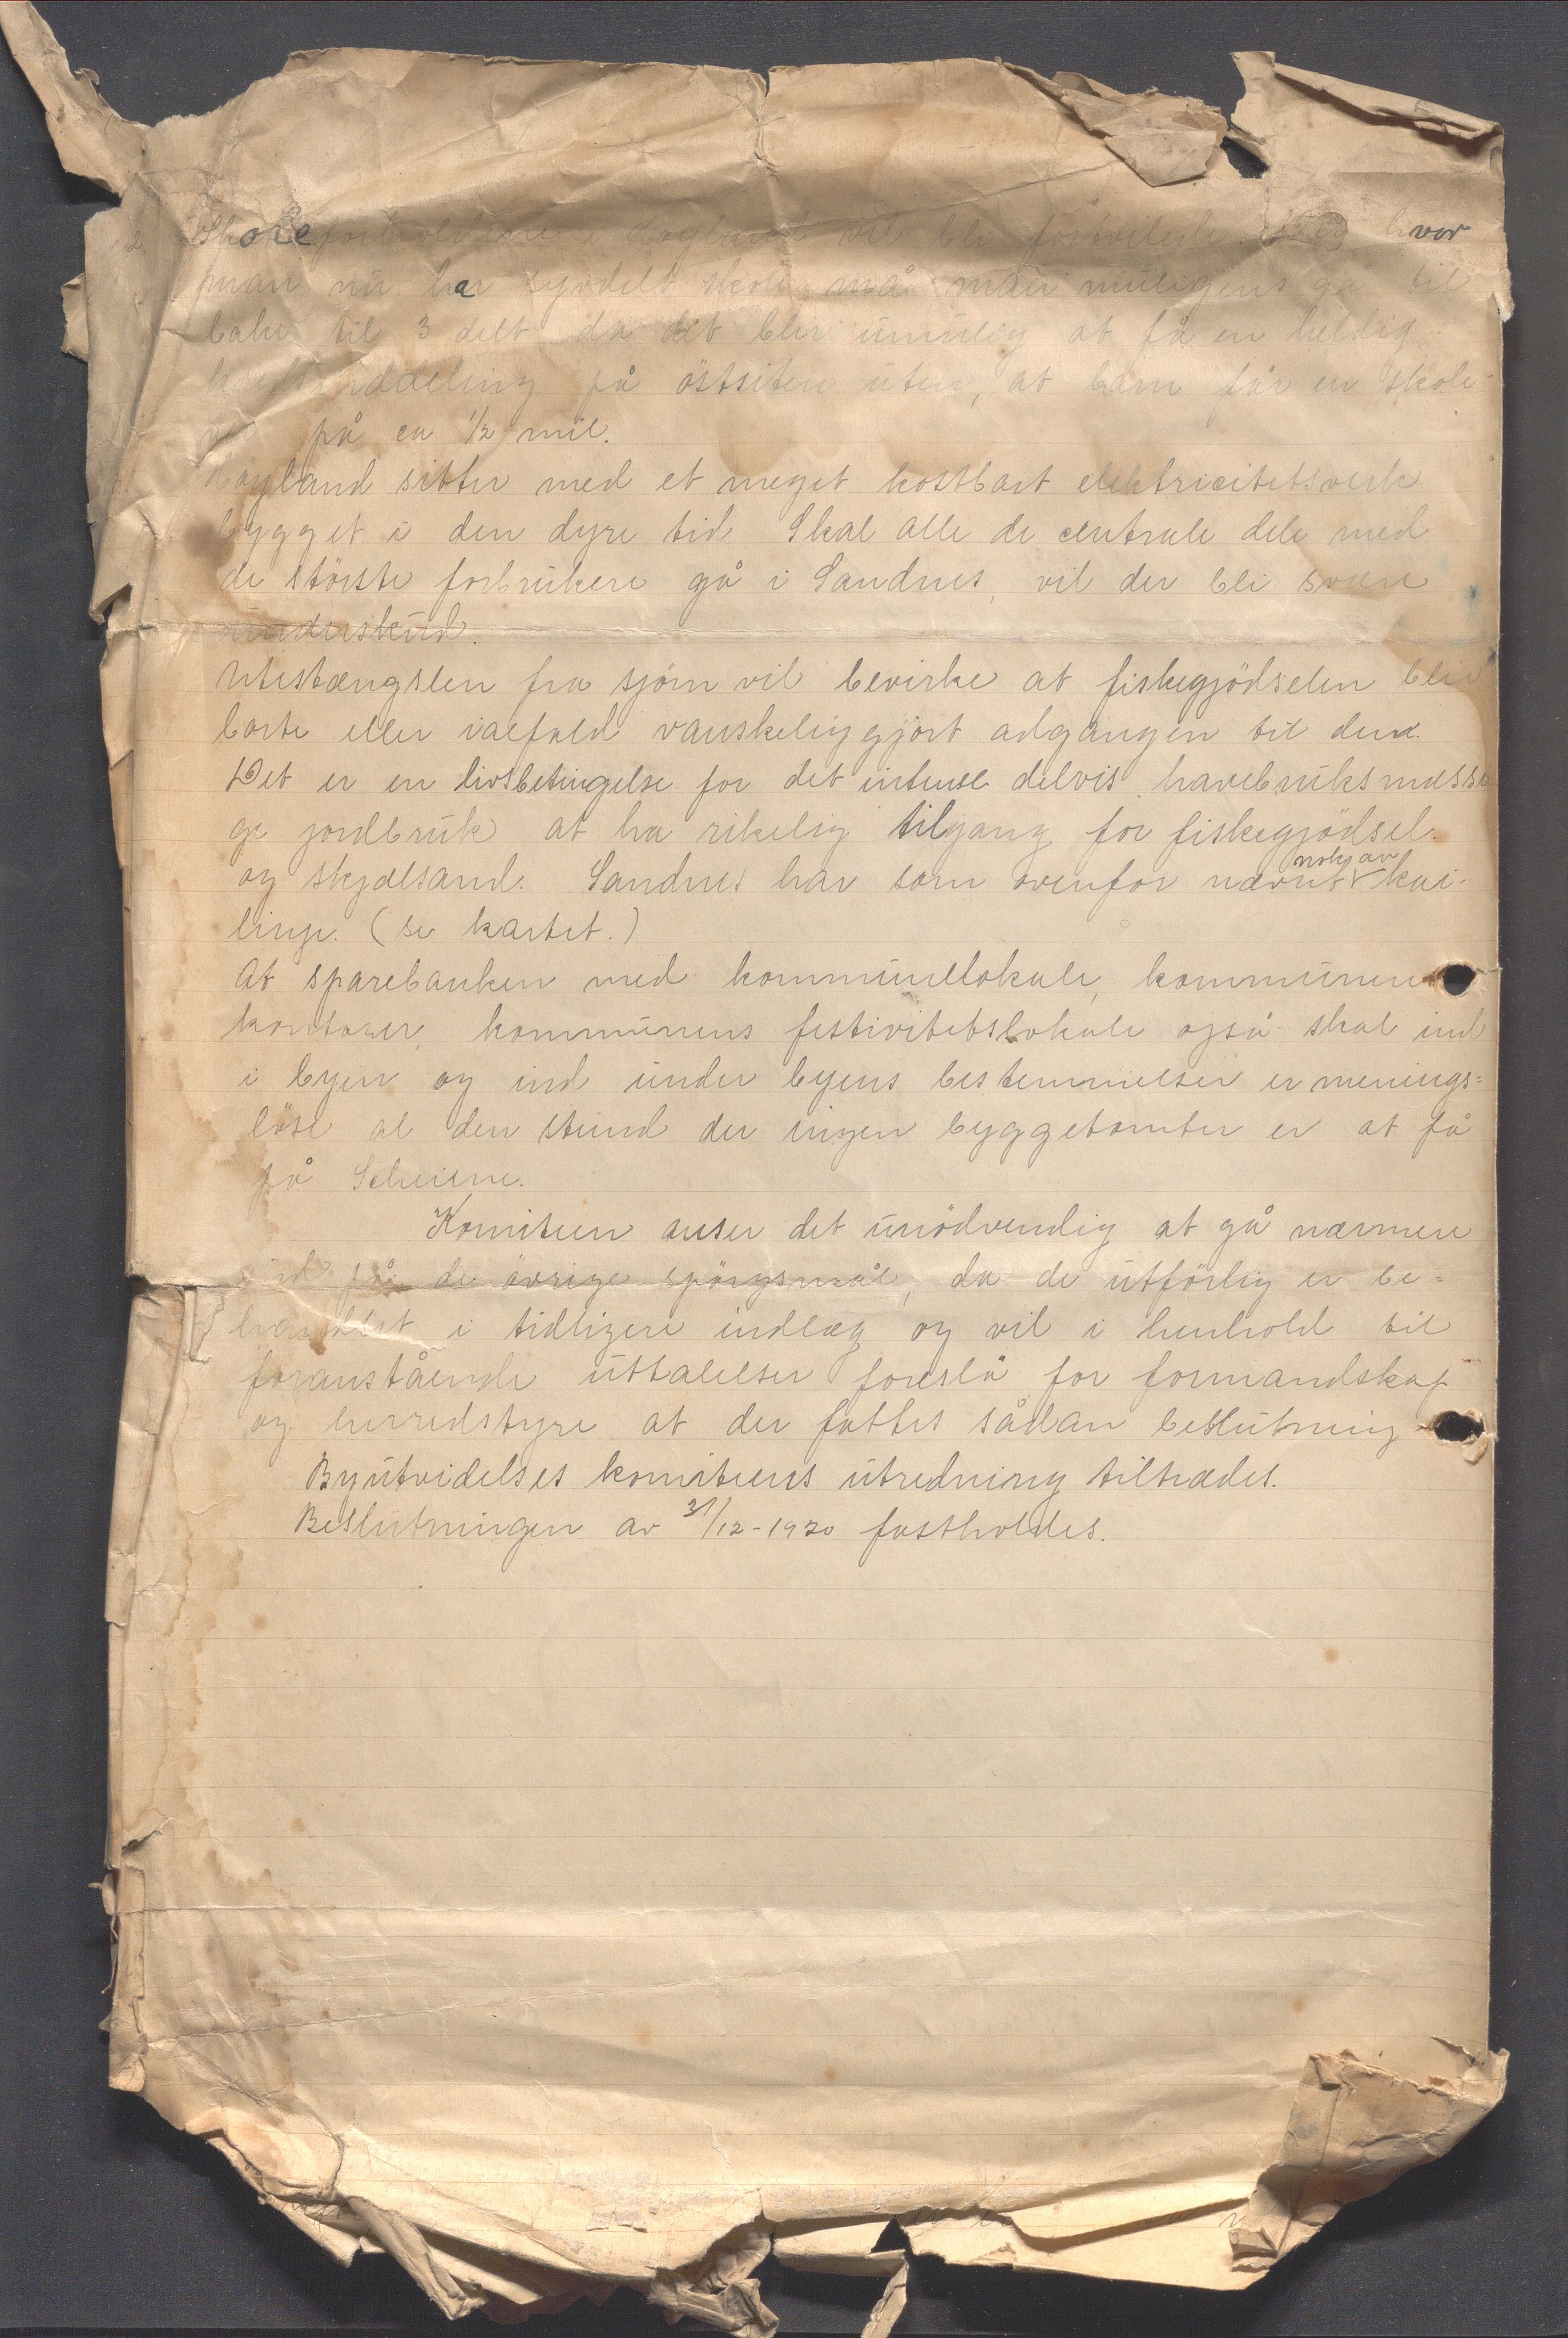 2. Skoleforholdene i Høyland vil bli fortvilede. hvor
man nu har syvdelt skole må man muligens gå til
bake til 3 delt da det blir umulig at få en heldig
inddeling på östsiten uten, at barn får en skole-
vei på ca 1/2 mil.
Höyland sitter med et meget kostbart elektricitetsverk
bygget i den dyre tid Skal alle de centrale dele med
de störste forbrukere gå i Sandnes, vil der bli svære
underskud.
Utestængslen fra sjöen vil bevirke at fiskegjödselen blir
borte eller ialfald vanskeliggjort adgangen til den.
Det er en livsbetingelse for det intense delvis havebruksmessi
ge jordbruk at ha rikelig tilgang for fiskegjödsel
og skjælsand. Sandnes har som ovenfor nævnt nok av kai-
linje. (se kartet.)
At sparebanken med kommunelokale, kommunens
kontorer, kommunens festivitetslokale også skal ind
i byen og ind under byens bestemmelser er menings=
löse al den stund der ingen byggetomter er at få
på
Komiteen anser det unödvendig at gå nærmere
ind på de övrige spörgsmål, da de utförlig er be=
handlet i tidligere indlæg og vil i henhold til
foranstående uttalelser foreslå for formandskap
og herredstyre at der fattes sådan beslutning
Byutvidelses komiteens utredning tiltrædes.
Beslutningen av 31/12-1920 fastholdes.